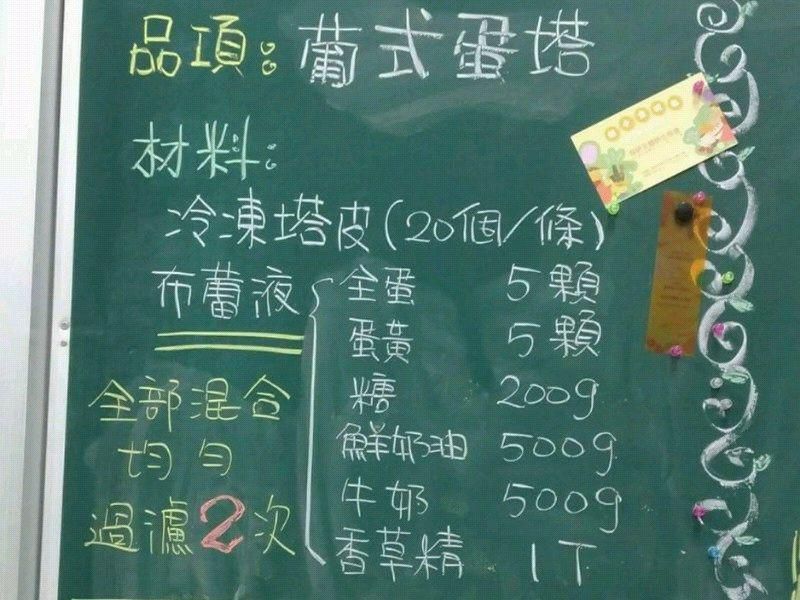 品項：葡式蛋塔
材料：
冷凍塔皮(20個/條)
布蕾液
全蛋 5顆
蛋黃 5顆
糖 200g
鮮奶油 500g
牛奶 500g
香草精 1T
全部混合
均勻
過濾2次